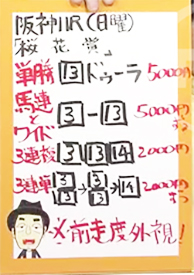 阪神11R(日曜)
「桜花賞」
単勝 13 ドゥーラ 5000円
馬連とワイド 3-13 5000円ずつ
3連複 3 13 14 2000円
3連単 3/13→3/13→14 2000円ずつ
※前走度外視!